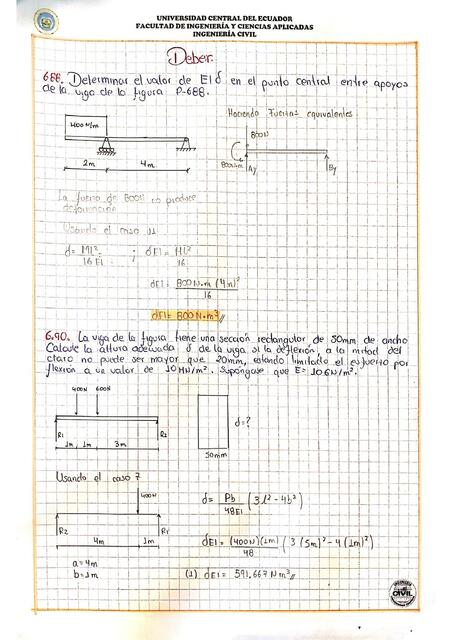 UNIVERSIDAD CENTRAL DEL ECUADOR
FACULTAD DE INGENIERÍA Y CIENCIAS APLICADAS
INGENIERÍA CIVIL
Deber.
688. Determinar el valor de EIδ en el punto central entre apoyos
de la viga de la figura P-688.
Haciendo fuerzas equivalentes
400 N/m
2m
4m
800N
800N.m
Ay
By
La fuerza de 800N no produce
deformación
Usando el caso 11
δ = ML²/16EI ; δEI = ML²/16
δEI = 800N.m (4m)²/16
δEI = 800N.m³//
6.90. La viga de la figura tiene una sección rectangular, de 50mm de ancho
Calcule la altura adecuada d de la viga si la deflexión, a la mitad del
claro no puede ser mayor que 20mm, estando limitado el esfuerzo por
flexión a un valor de 10MN/m². Supóngase que E= 10GN/m².
400N 600N
R1
R2
1m 1m 3m
d=?
50mm
Usando el caso 7
400N
R2
R1
4m
1m
a=4m
b=1m
δ = Pb/48EI (3l² - 4b²)
δEI = (400N)(1m)/48 (3(5m)² - 4(1m)²)
(1) δEI = 591,667Nm³//
CIVIL